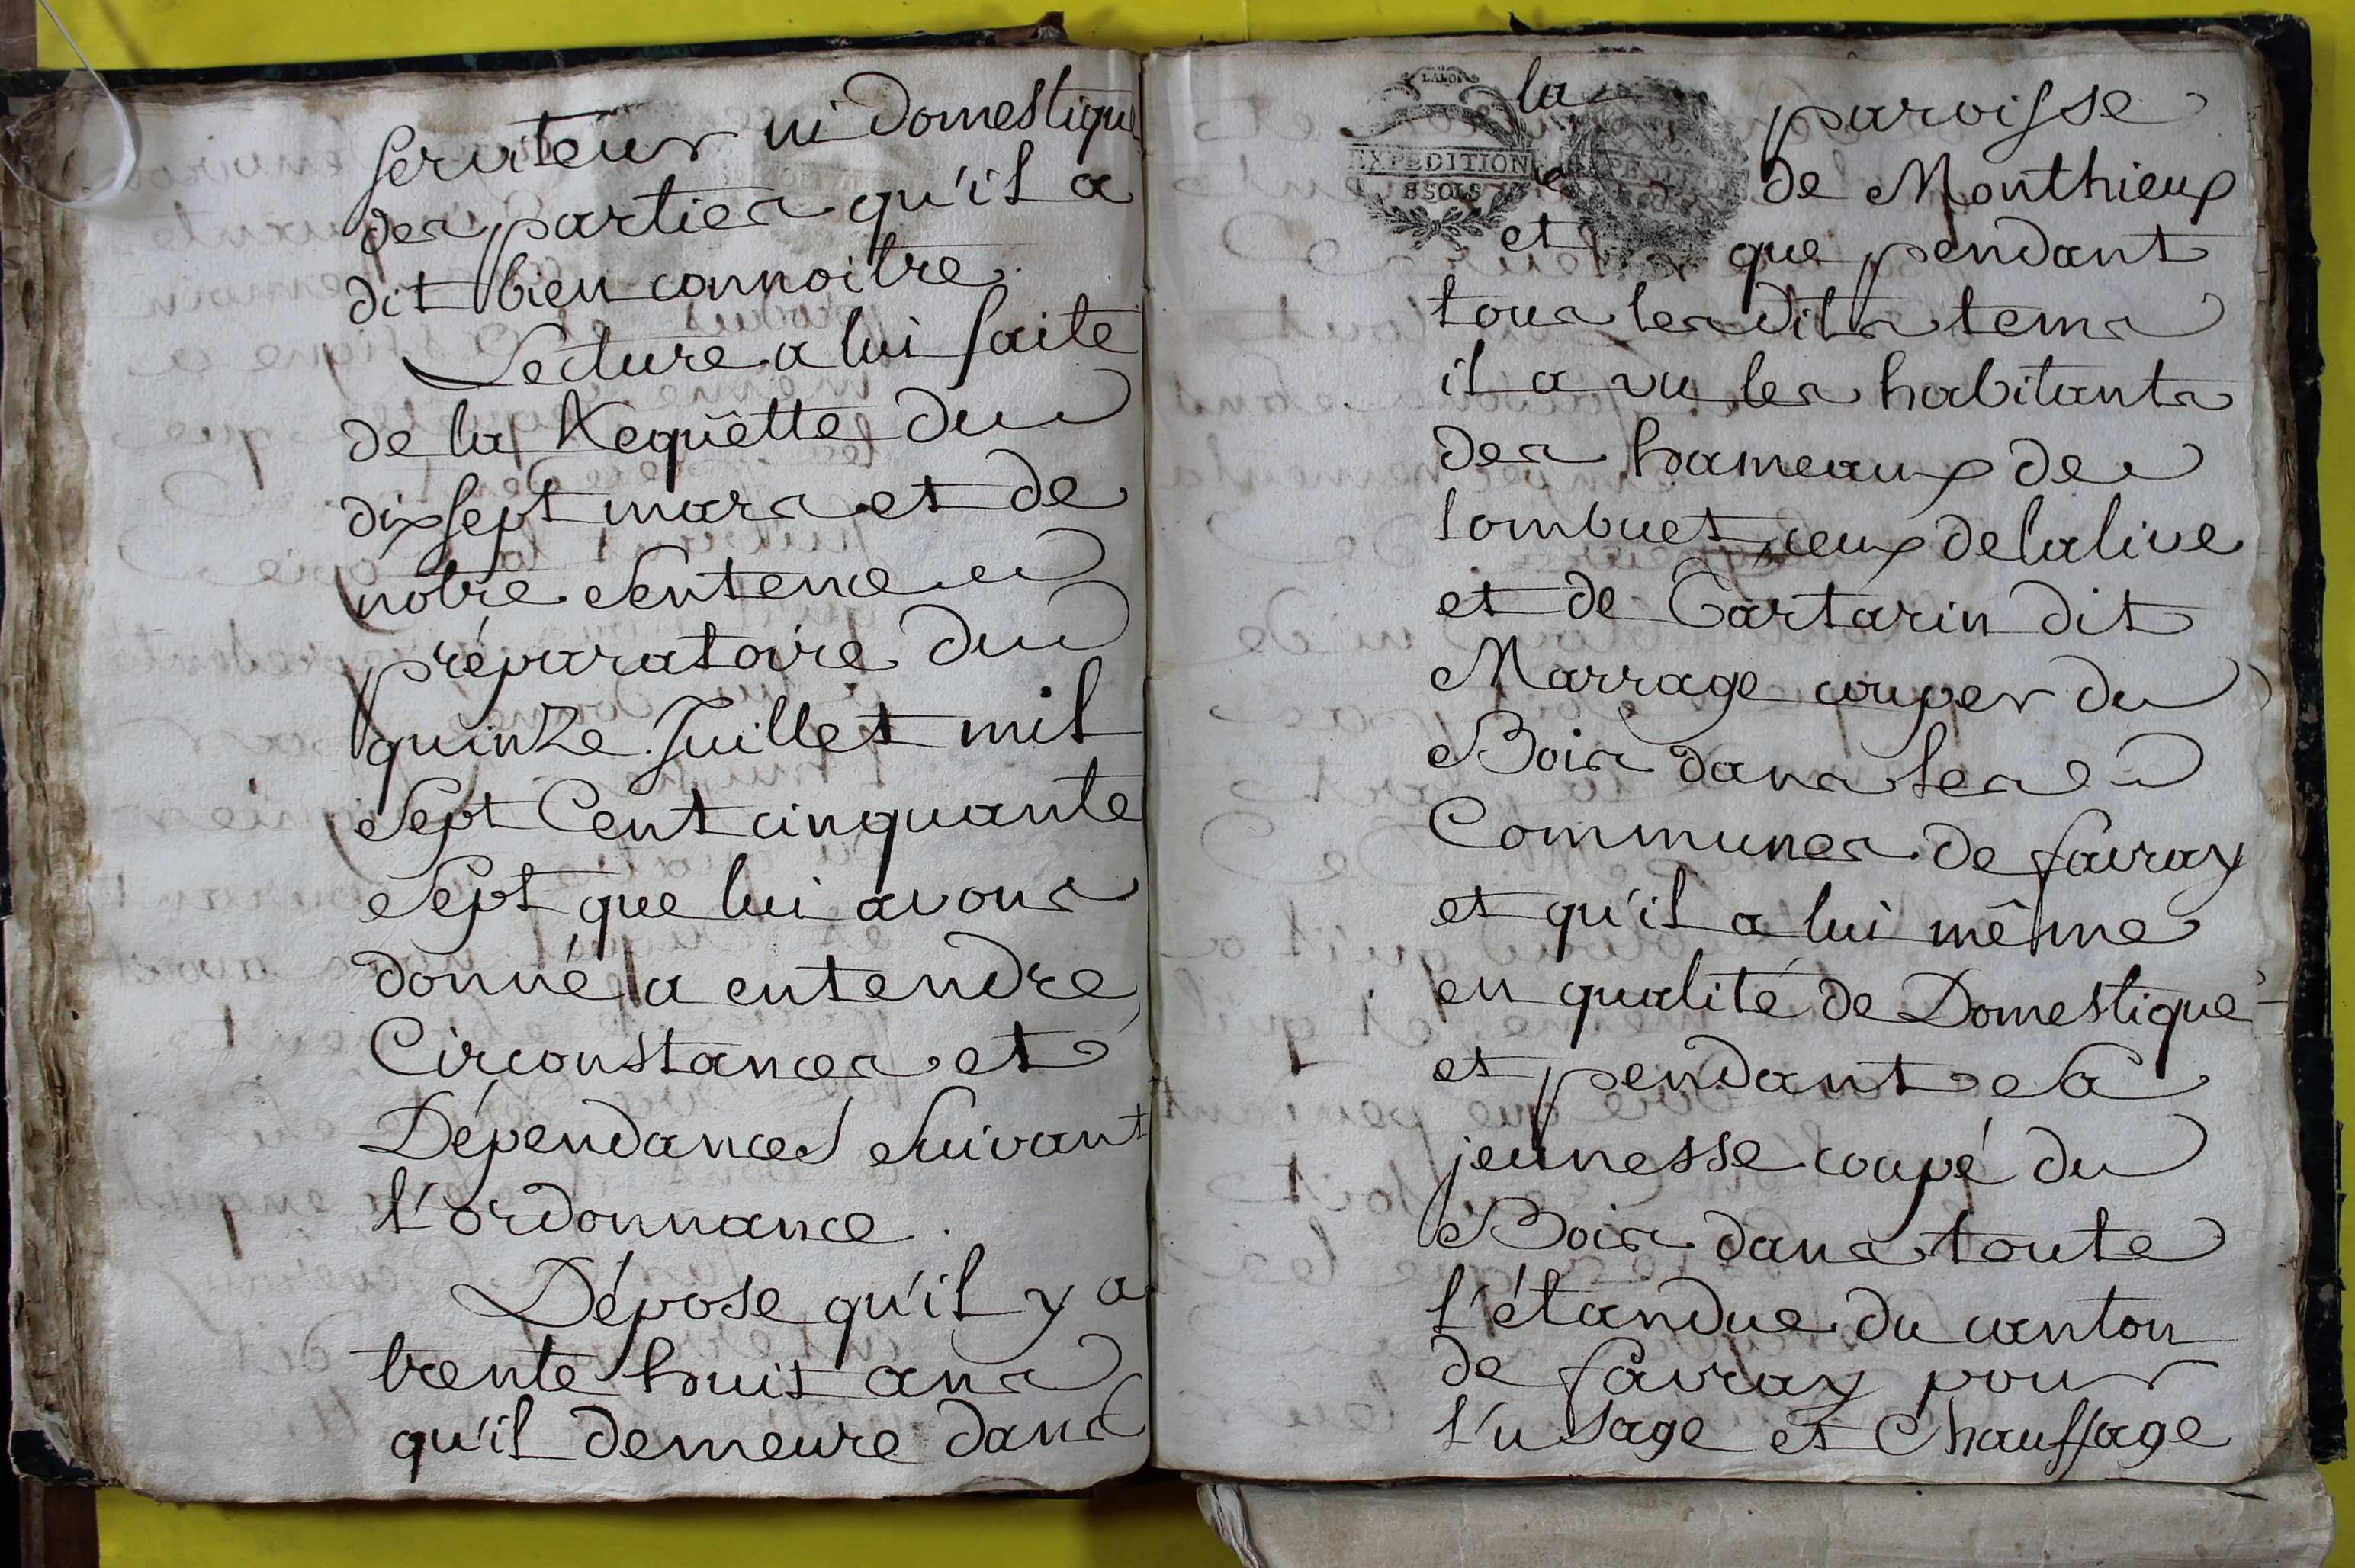 serviteur ni Domestique
des parties qu'il a
dit bien connoitre.
Lecture a lui faite
de la Requëtte du
dixsept mars et de
nôtre Sentence
préparatoire du
quinze Juillet mil
Sept Cent cinquante
Sept que lui avons
donné a entendre
Circonstances et
Dépendances Suivant
l'ordonnance.
Dépose qu'il y a
trente huit ans
qu'il demeure dans
la paroisse
de Monthieux
et que pendant
tous lesdits tems
il a vu les habitants
des hameaux de
lombuet, ceux de la live
et de Tartarin dit
Marrage couper du
Bois dans les
Communes de favray
et qu'il a lui même
en qualité de Domestique
et pendant Sa
jeunesse coupé du
Bois dans toute
l'étandue du canton
de favray pour
l'usage et Chauffage
EXPEDITION
8 SOLS